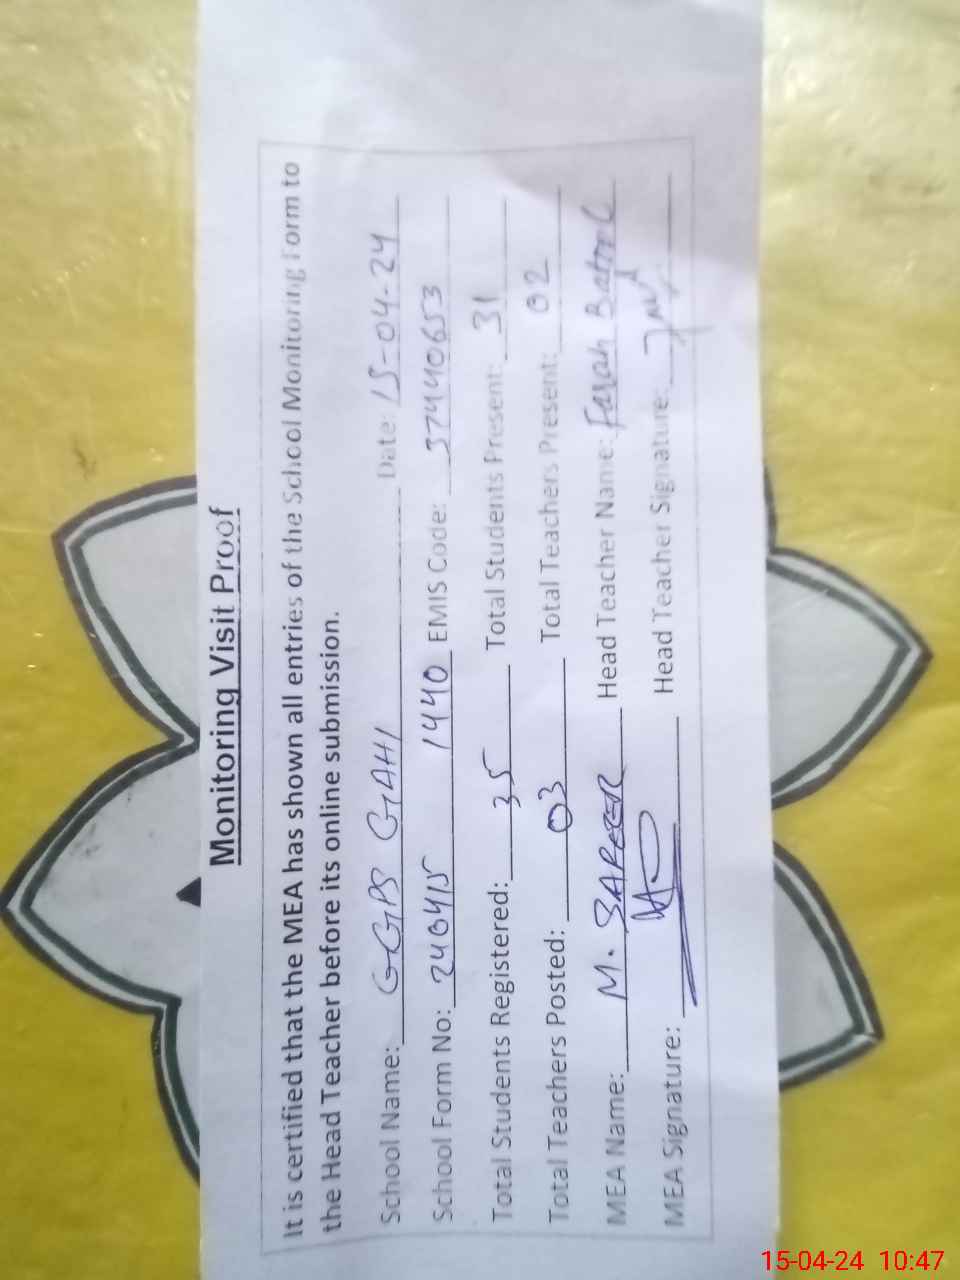 Monitoring Visit Proof
It is certified that the MEA has shown all entries of the School Monitoring Form to
the Head Teacher before its online submission.
School Name: GGPS GAHI Date: 15-04-24
School Form No: 240415 1440 EMIS Code: 37440653
Total Students Registered: 35 Total Students Present: 31
Total Teachers Posted: 03 Total Teachers Present: 02
MEA Name: M. SAFEER Head Teacher Name: Farah Batool
MEA Signature: Head Teacher Signature:
15-04-24 10:47